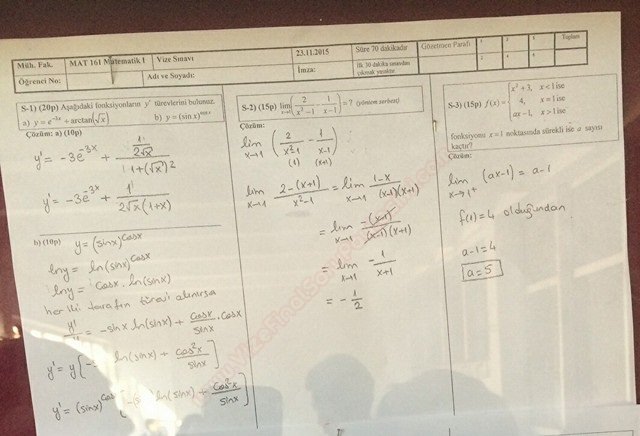 Müh. Fak. MAT 161 Matematik I Vize Sınavı 23.11.2015 Süre 70 dakikadır Gözetmen Parafı 1 2 3 Toplam
4 5 6
Öğrenci No: Adı ve Soyadı: İmza: İlk 30 dakika sınavdan çıkmak yasaktır
S-1) (20p) Aşağıdaki fonksiyonların y' türevlerini bulunuz.
a) y = e^{-3x} + arctan(√x) b) y = (sin x)^{cos x}
Çözüm: a) (10p)
y' = -3e^{-3x} + (1/(2√x))/(1+(√x)^2)
y' = -3e^{-3x} + 1/(2√x(1+x))
b) (10p) y = (sinx)^{cosx}
lny = ln(sinx)^{cosx}
lny = cosx. ln(sinx)
her iki tarafın türevi alınırsa
y'/y = -sinx ln(sinx) + cosx/sinx . cosx
y' = y[-s ln(sinx) + cos²x/sinx]
y' = (sinx)^{cosx} [-(s ln(sinx) + cos²x/sinx]
S-2) (15p) lim_{x→1} (2/(x²-1) - 1/(x-1)) = ? (yöntem serbest)
Çözüm:
lim_{x→1} (2/(x²-1) - 1/(x-1))
(1) (x+1)
lim_{x→1} (2-(x+1))/(x²-1) = lim_{x→1} (1-x)/((x-1)(x+1))
= lim_{x→1} -(x-1)/((x-1)(x+1))
= lim_{x→1} -1/(x+1)
= -1/2
S-3) (15p) f(x) = { x² + 3, x < 1 ise
4, x = 1 ise
ax - 1, x > 1 ise
fonksiyonu x = 1 noktasında sürekli ise a sayısı
kaçtır?
Çözüm:
lim_{x→1⁺} (ax-1) = a-1
f(1) = 4 olduğundan
a-1 = 4
a = 5